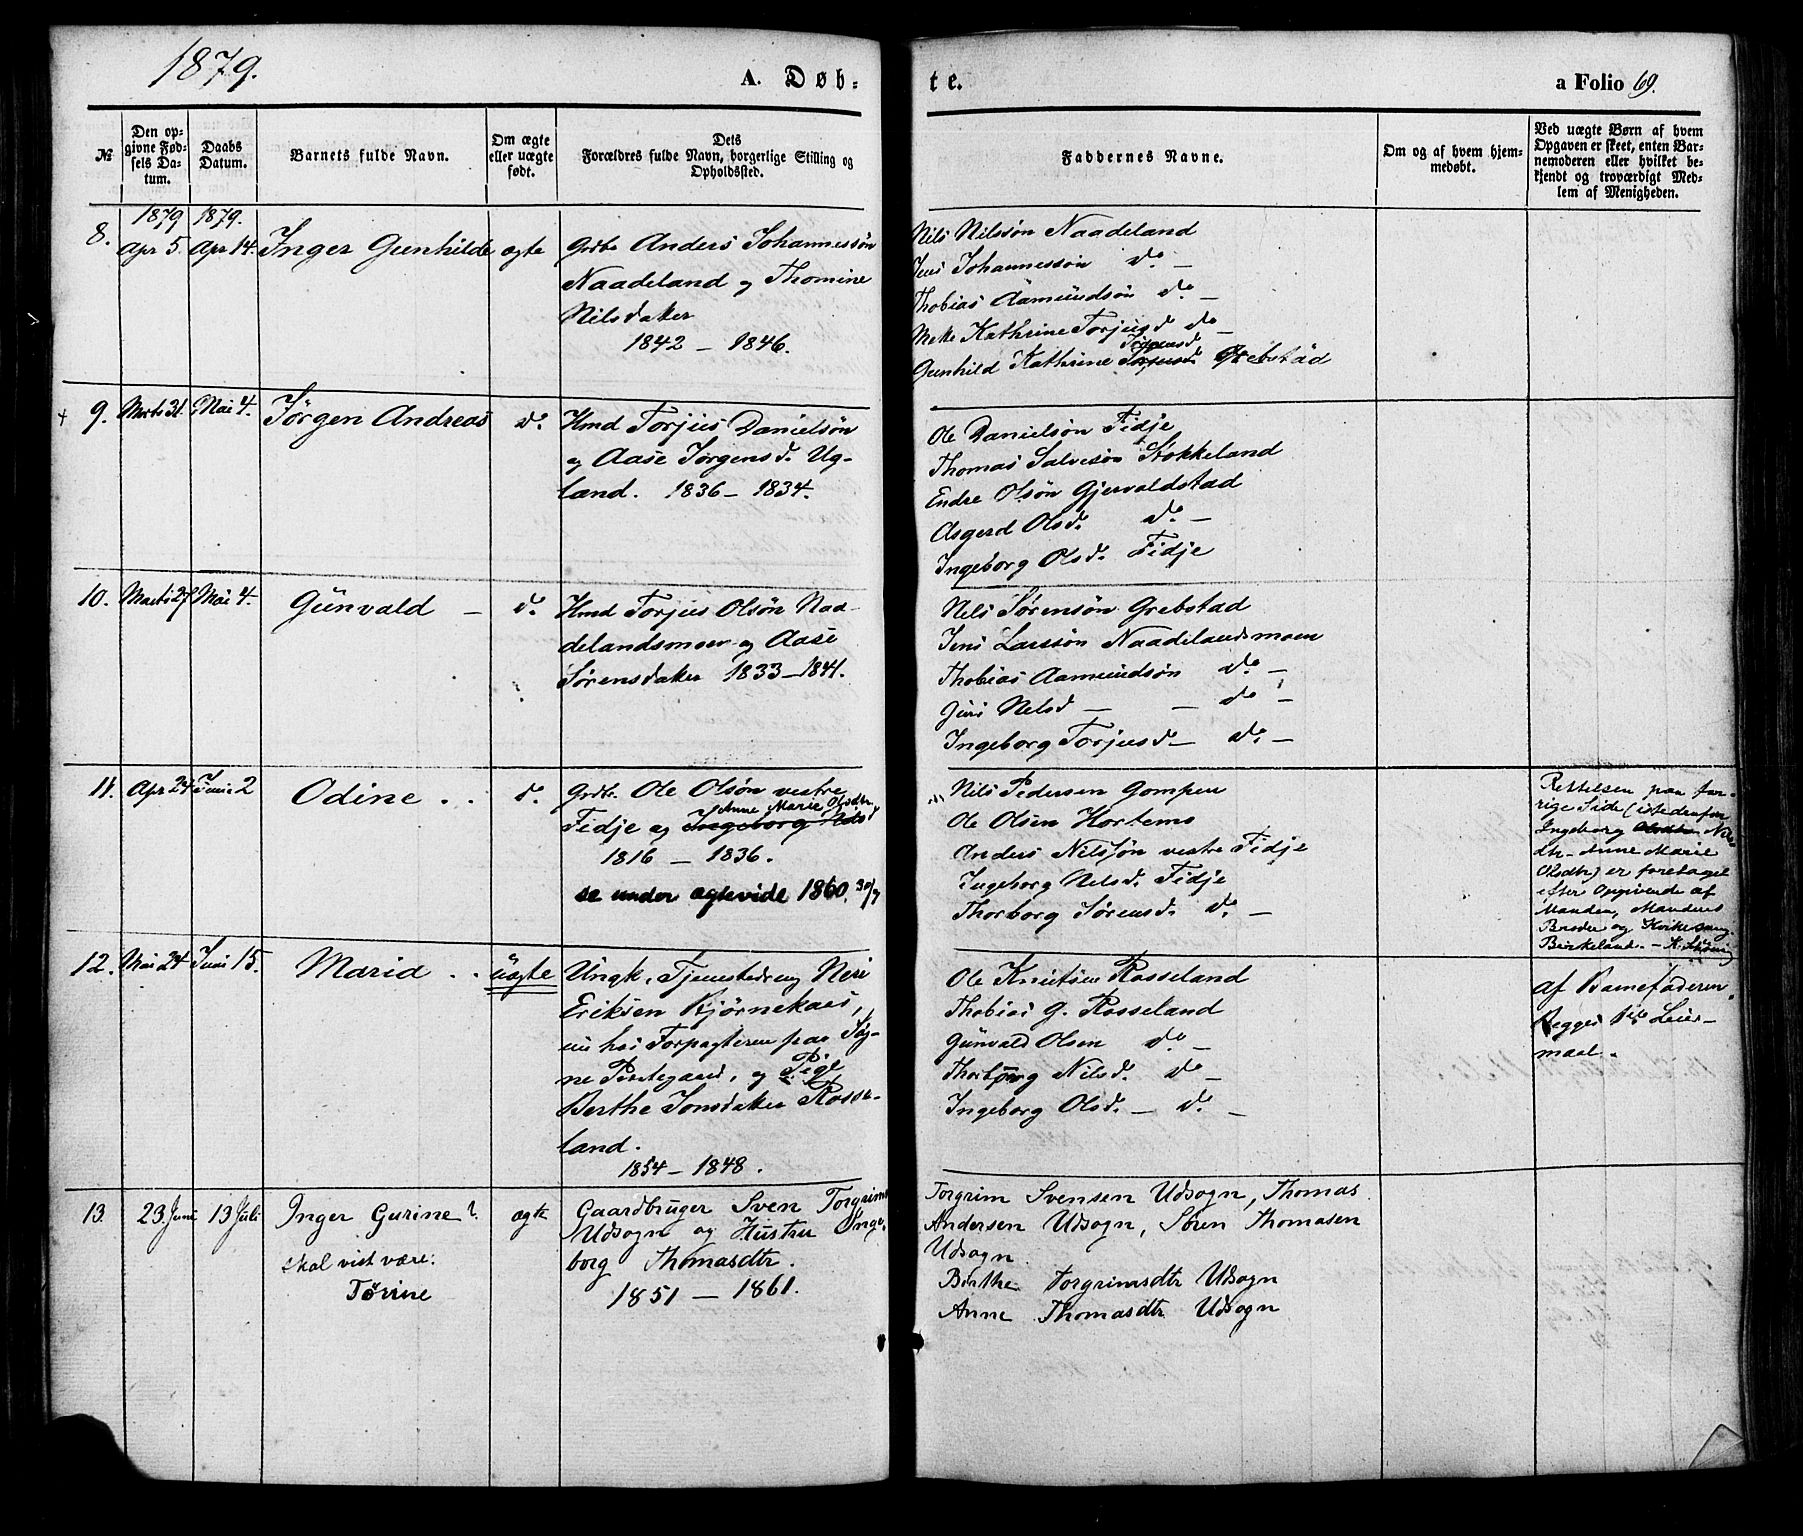 1879.
A. Døb-
te.
a Folio 69.
№
Den op-
givne Fød-
sels Da-
tum.
Daabs
Datum.
Barnets fulde Navn.
Om ægte
eller uægte
født.
Dets
Forældres fulde Navn, borgerlige Stilling og
Opholdssted.
Faddernes Navne.
Om og af hvem hjem-
medøbt.
Ved uægte Børn af hvem
Opgaven er skeet, enten Bar-
nemoderen eller hvilket be-
kjendt og troværdigt Med-
lem af Menigheden.
1879 1879.
8. Apr 5. Apr 14. Inger Gunhilde ægte Grdbr Anders Johannessøn
Naadeland og Thomine
Nilsdatter
1842 – 1846.
Nils Nilssøn Naadeland
Jens Johannessøn do –
Thobias Aamundsøn do –
Mette Kathrine Torjusd do –
Tørresd
Gunhild Kathrine Torjusd. Grebstad
9. Marts 31. Mai 4. Jørgen Andreas do. Hmd Torjus Danielsøn
og Aase Jørgensd. Ug-
land. 1836 – 1834.
Ole Danielsøn Fidje
Thomas Salvesøn Stokkeland
Endre Olsøn Gjervaldstad
Asgerd Olsd. do –
Ingeborg Olsd. Fidje
10. Marts 27 Mai 4. Gunvald – do. Hmd Torjus Olsøn Naa-
delandsmoen og Aase
Sørensdatter 1833 – 1841.
Nels Sørensøn Grebstad
Jens Larssøn Naadelandsmoen
Thobias Aamundsøn do –
Nelsd – – do –
Ingeborg Torjusd – do. –
11. Apr 24 Juni 2 Odine . . do. Grdbr. Ole Olsøn vestre
Anne Marie Olsdtr
Fidje og Ingeborg Nelsd
1816 – 1836.
se under ægtevide 1860. 30/7
Nils Pedersen Gompen
Ole Olsen Hortemo
Anders Nilssøn vestre Fidje
Ingeborg Nelsd. Fidje
Thorborg Sørensd. do. –
Rettelsen paa for-
rige Side (istedenfor
Ingeborg Olsdtr Nils
dtr – Anne Marie
Olsdtr) er foretaget
efter Opgivende af
Manden, Mandens
Broder og Kirkesang.
Birkeland. –
12. Mai 24 Juni 15. Maria . . uægte Ungk. Tjenestedreng Neri
Eriksen Bjørnekaes,
nu hos Forpagteren paa Søg-
ne Prestegaard, og Pige
Berthe Jonsdatter Rosse-
land.
1854 – 1848.
Ole Knutsen Rosseland
Thobias G. Rosseland
Gunvald Olsen do –
Thorborg Nilsd. do –
Ingeborg Olsd. – do. –
af Barnefaderen.
Begges 1ste Leier-
maal.
13. 23. Juni 13 Juli Inger Gurine? ægte Gaardbruger Sven Torgrims
Udsogn og Hustru Inge-
skal vist være:
borg Thomasdtr.
Tørine
1851 – 1861.
Torgrim Svensen Udsogn, Thomas
Andersen Udsogn, Søren Thomasen
Udsogn
Birthe Torgrimsdtr Udsogn
Anne Thomasdtr Udsogn